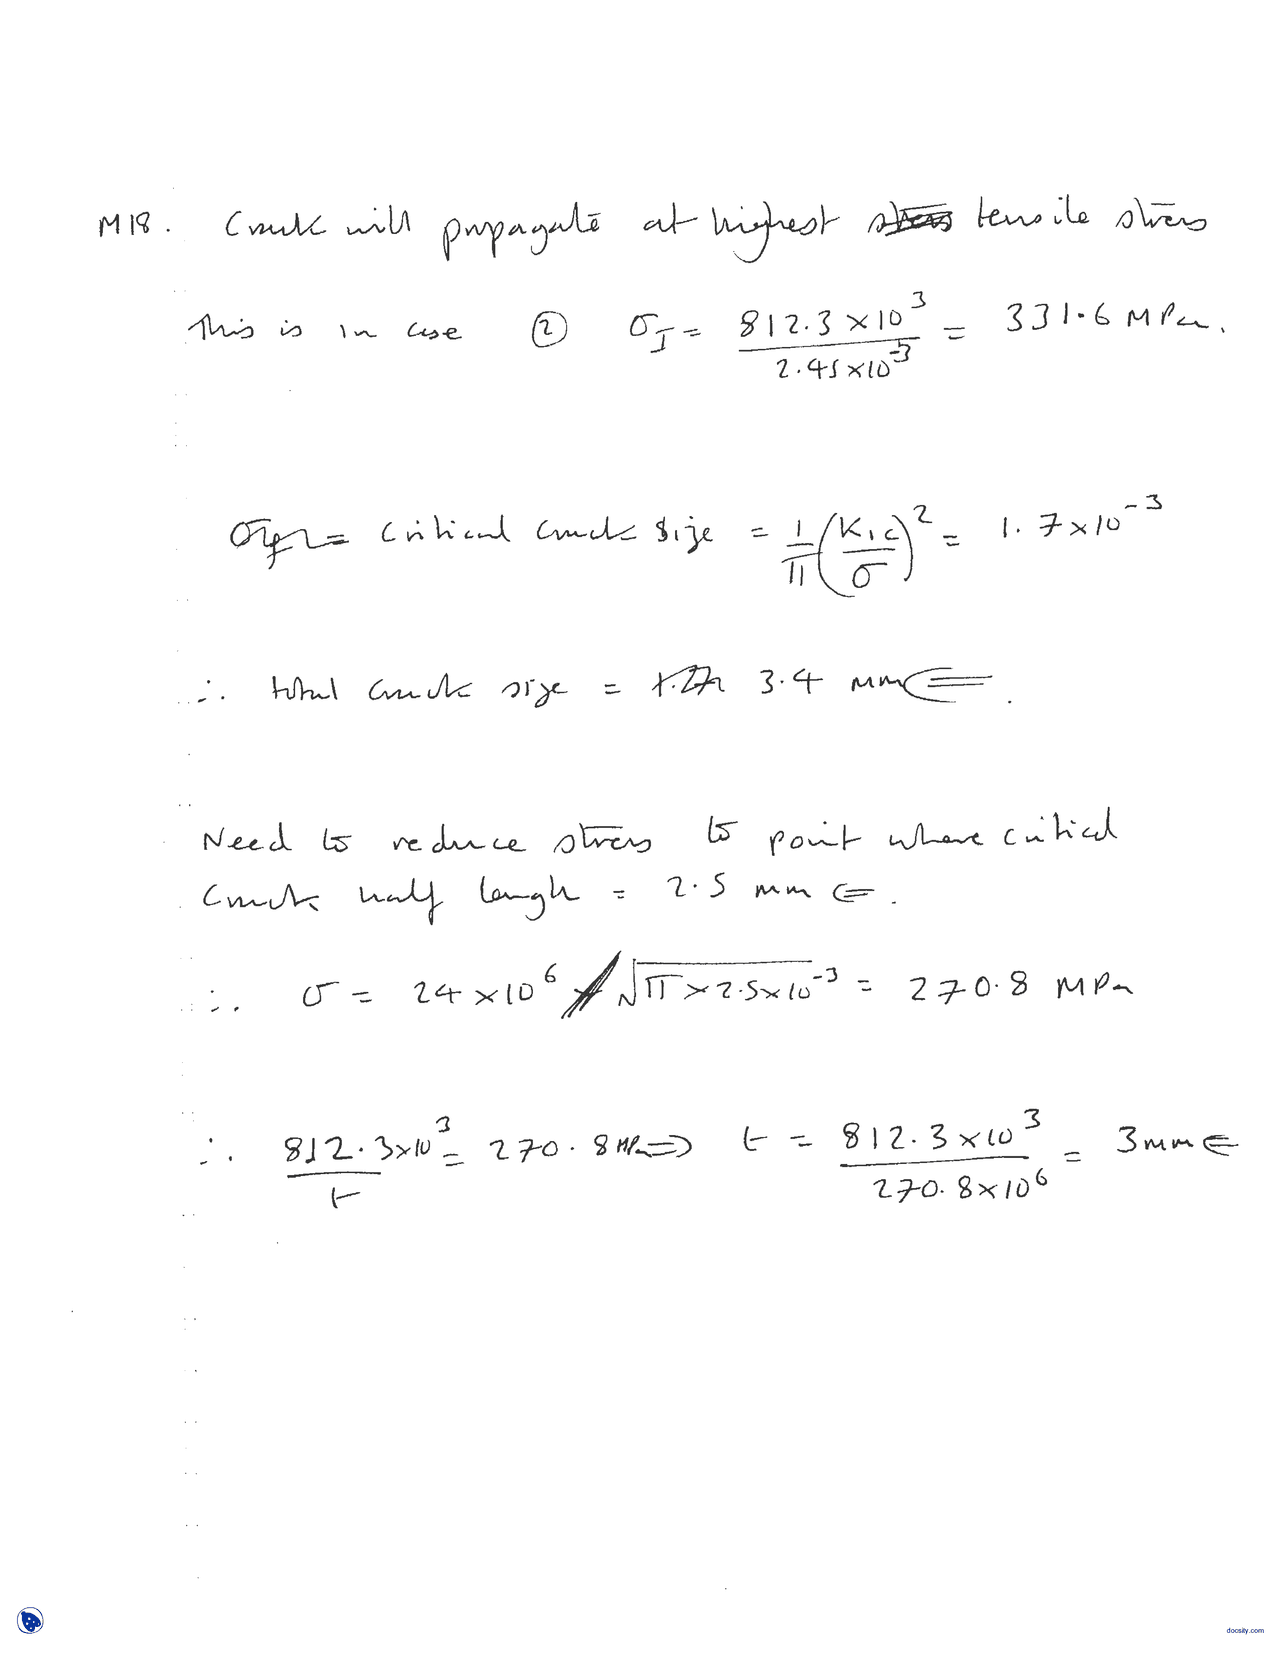 M18. Crack will propagate at highest tensile stress
This is in case ② σ_I = 812.3 × 10³ / 2.45 × 10⁻³ = 331.6 MPa.
= Critical Crack Size = 1/π (K₁c/σ)² = 1.7 × 10⁻³
∴ total crack size = 3.4 mm ⇐.
Need to reduce stress to point where critical
Crack half length = 2.5 mm ⇐.
∴ σ = 24 × 10⁶ / √(π × 2.5 × 10⁻³) = 270.8 MPa
∴ 812.3 × 10³ / t = 270.8 MPa ⇒ t = 812.3 × 10³ / 270.8 × 10⁶ = 3mm ⇐
docsity.com